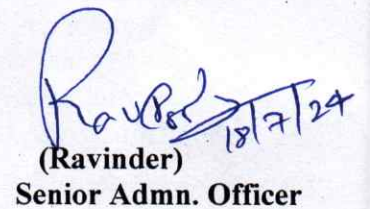 Ravinder
18/7/24
(Ravinder)
Senior Admn. Officer